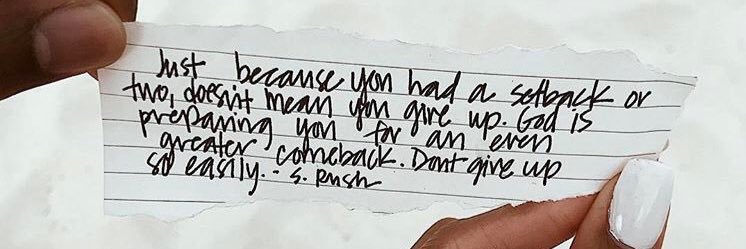 Just because you had a setback or
two, doesn't mean you give up. God is
preparing you for an even
greater comeback. Dont give up
so easily. - S. Rush